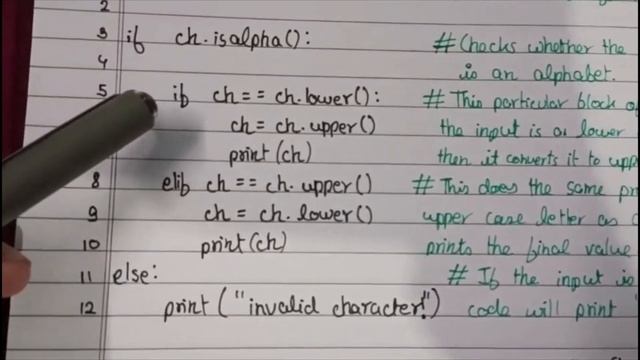 2
3 if ch.isalpha(): # Checks whether the
4 is an alphabet.
5 if ch == ch.lower(): # This particular block
ch = ch.upper() the input is a lower
print(ch) then it converts it to upp
8 elif ch == ch.upper() # This does the same pr
9 ch = ch.lower() upper case letter as
10 print(ch) prints the final value
11 else: # If the input is
12 print ("invalid character!") code will print